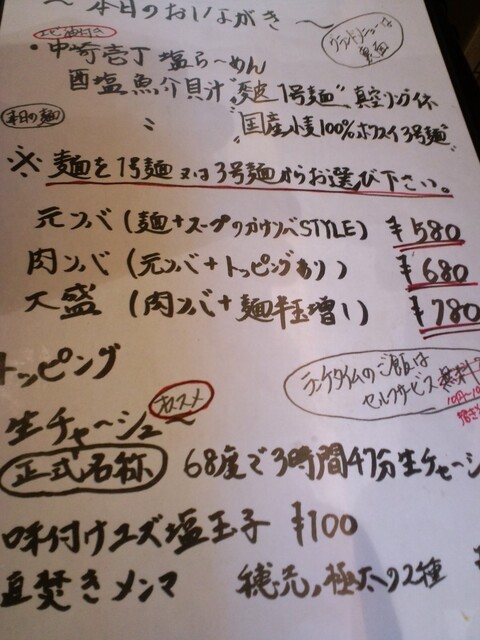 ～本日のおしながき～
グランドメニューは裏面
・中崎壱丁 塩らーめん
酉塩魚介貝汁 "麦皮1号麺"
本日の麺
〃 "国産小麦100% 3号麺"
※麺を1号麺又は3号麺からお選び下さい。
元ソバ (麺+スープのかけソバSTYLE) ¥580
肉ソバ (元ソバ+トッピングあり) ¥680
大盛 (肉ソバ+麺半玉増し) ¥780
トッピング
ランチタイムのご飯は
セルフサービス無料
オススメ
生チャーシュー
正式名称 68度で3時間47分生チャーシ
味付けユズ塩玉子 ¥100
直焚きメンマ 穂先,極太の2種